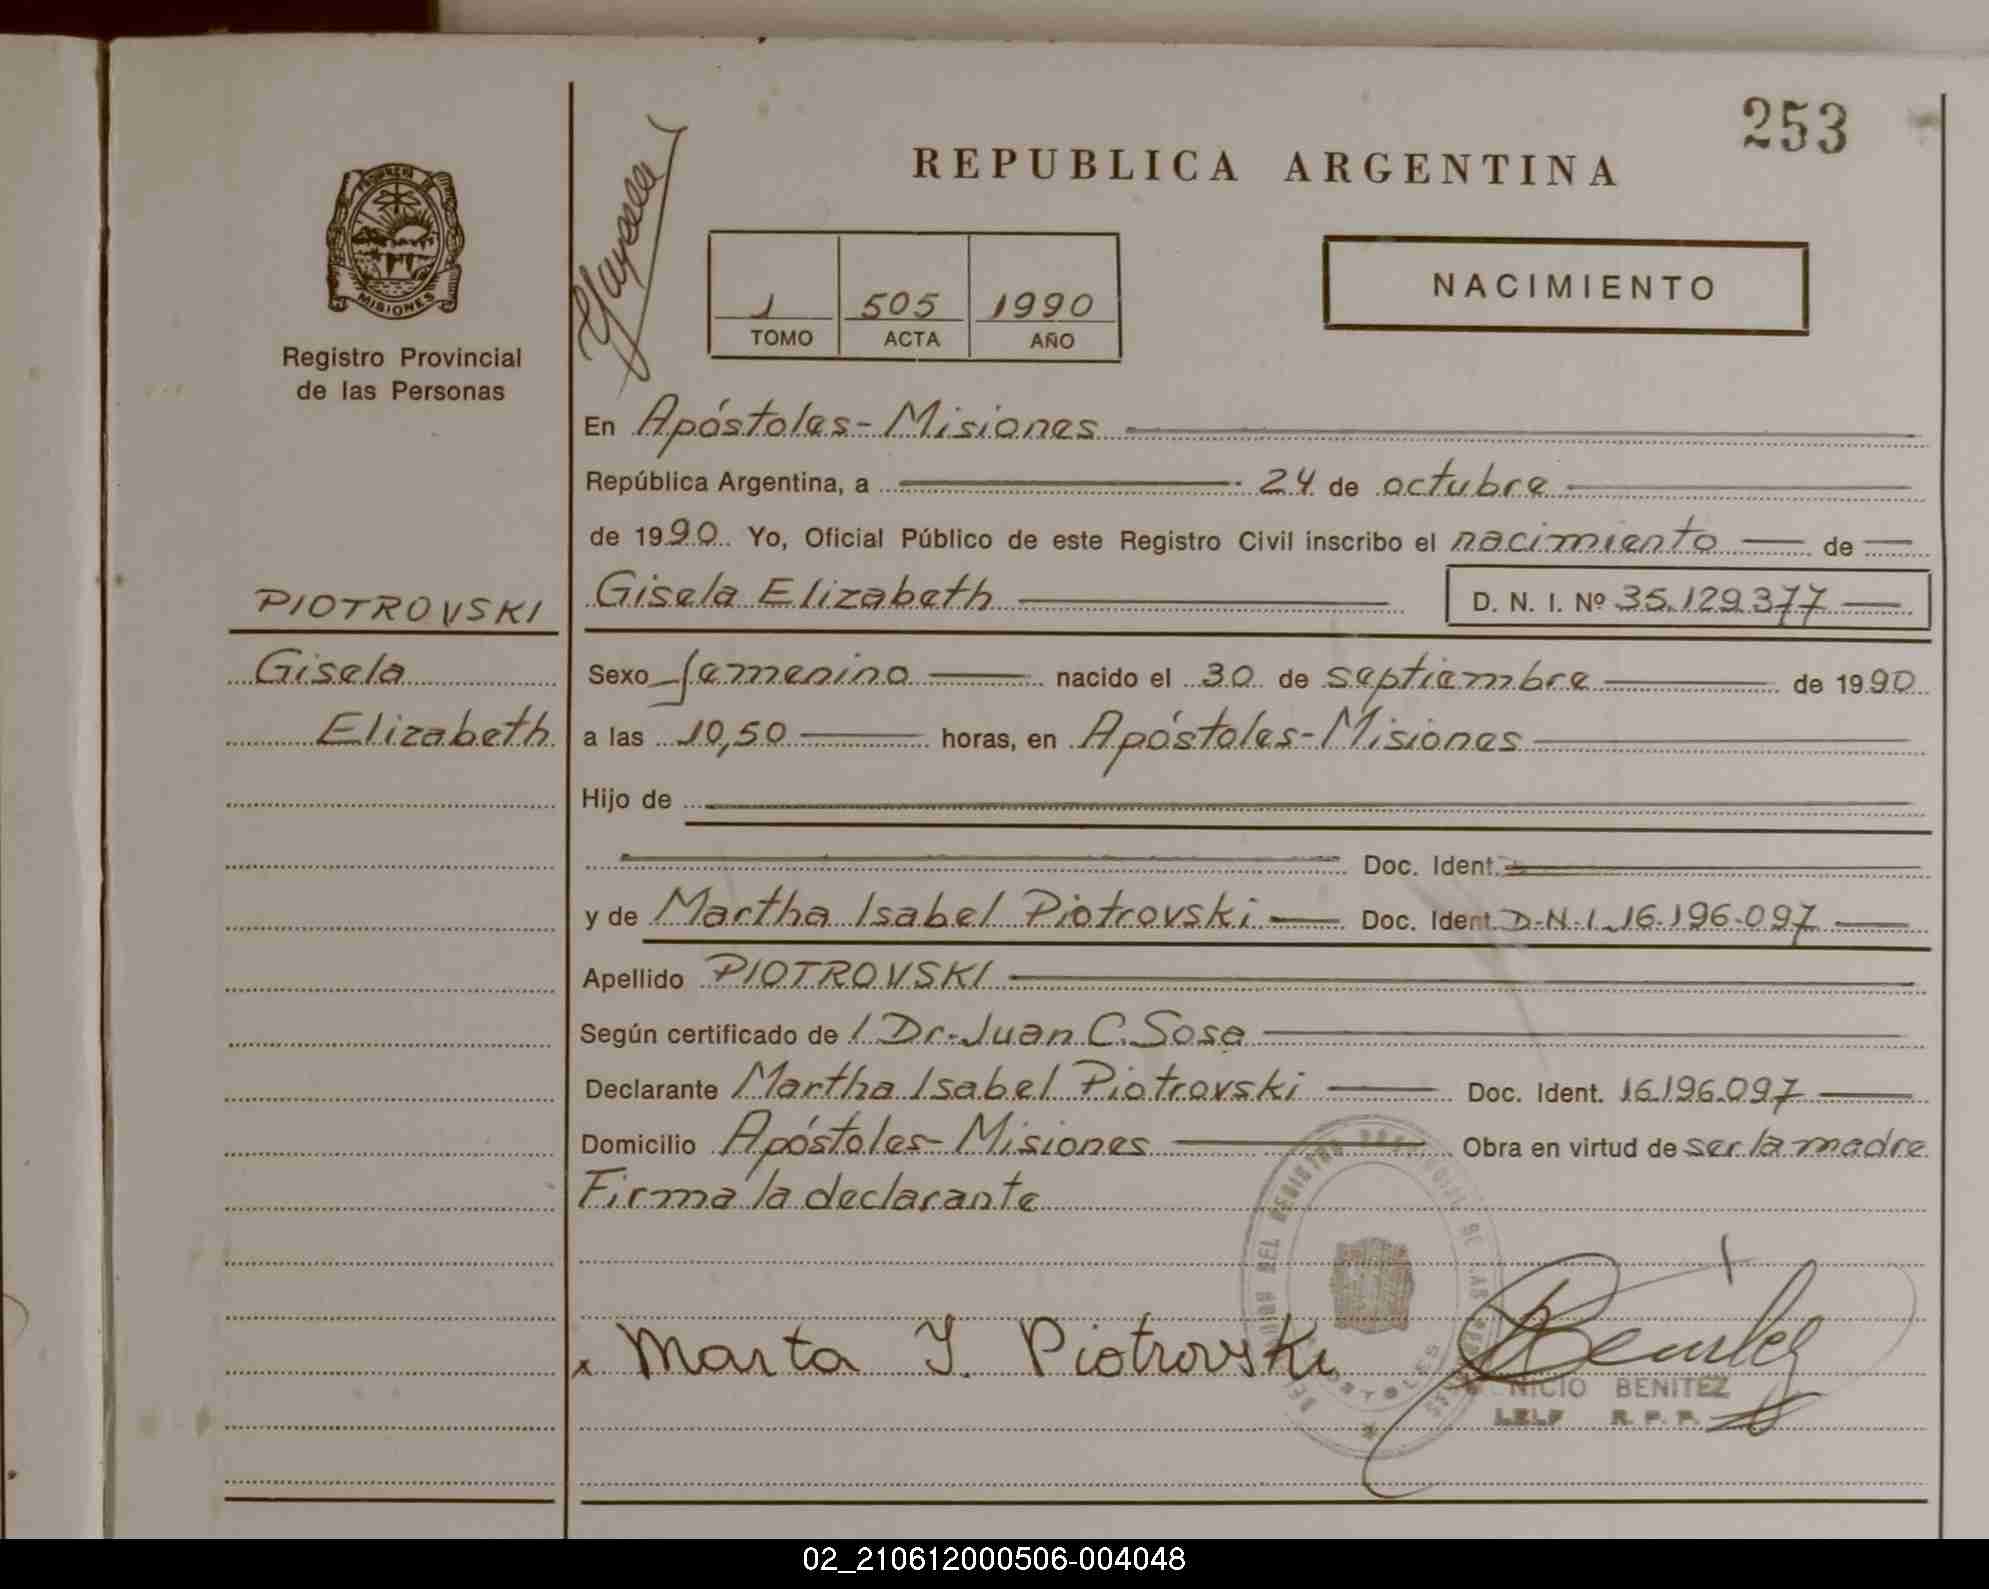 253
REPUBLICA ARGENTINA
PROVINCIA DE
MISIONES
Registro Provincial
de las Personas
1 505 1990
TOMO ACTA AÑO
NACIMIENTO
En Apóstoles-Misiones
República Argentina, a 24 de octubre
de 1990. Yo, Oficial Público de este Registro Civil inscribo el nacimiento de
PIOTROVSKI
Gisela Elizabeth D. N. I. Nº 35.129.377
Gisela
Elizabeth
Sexo femenino nacido el 30 de septiembre de 1990
a las 10,50 horas, en Apóstoles-Misiones
Hijo de
Doc. Ident.
y de Martha Isabel Piotrovski Doc. Ident. D-N-I-16-196-097
Apellido PIOTROVSKI
Según certificado de / Dr. Juan C. Sosa
Declarante Martha Isabel Piotrovski Doc. Ident. 16.196.097
Domicilio Apóstoles-Misiones Obra en virtud de ser la madre
Firma la declarante
x Marta I. Piotrovski
Benitez
NICIO BENITEZ
R. P. P.
02_210612000506-004048